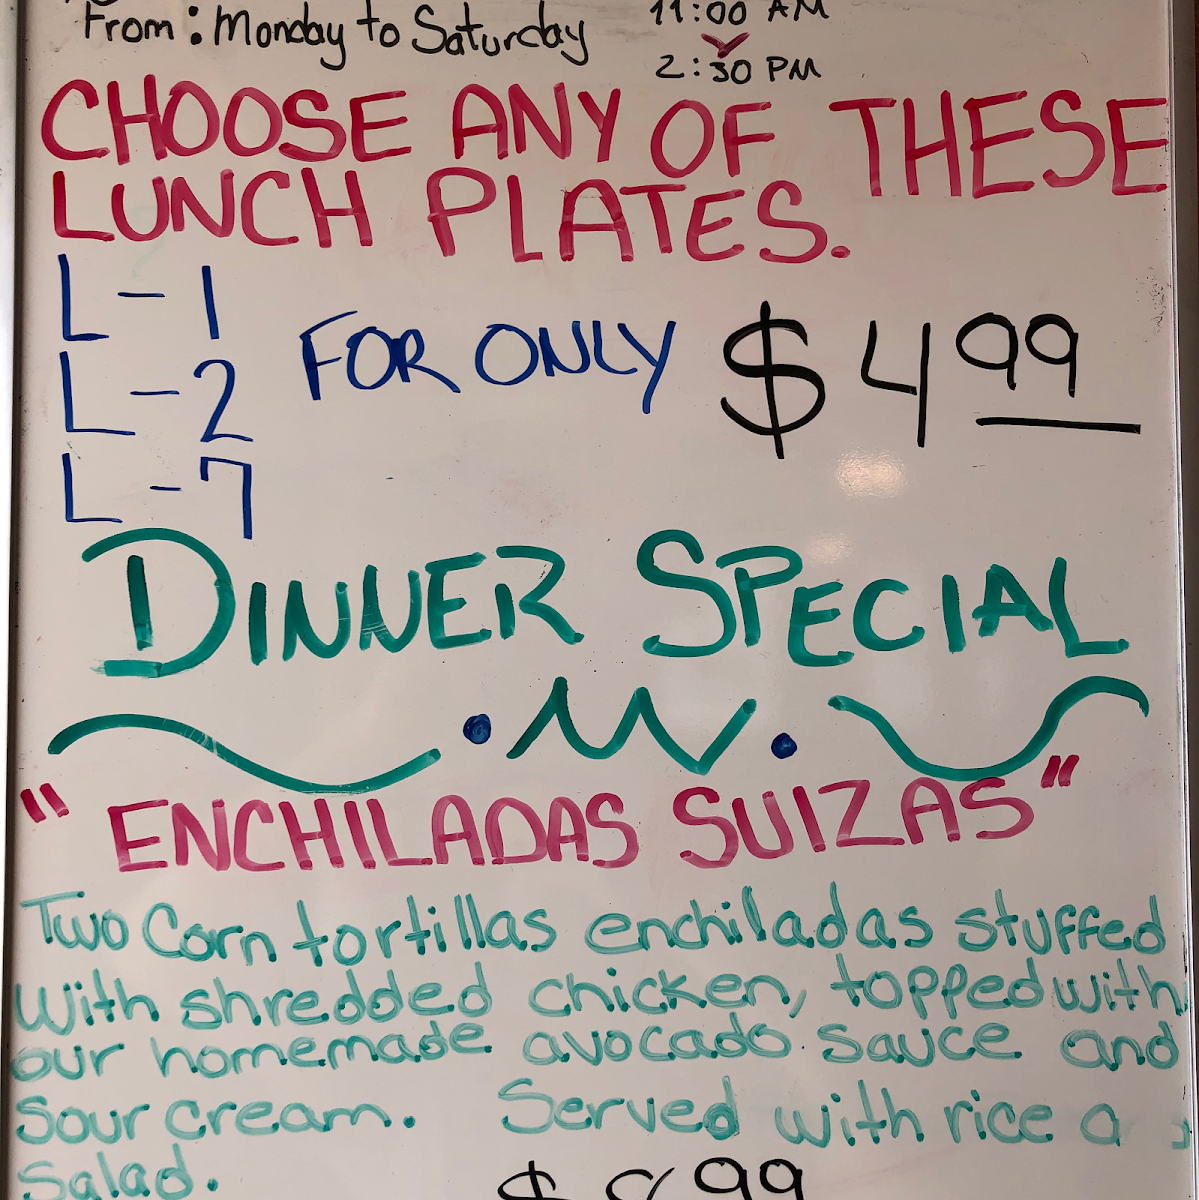 From: Monday to Saturday 11:00 AM
2:30 PM
CHOOSE ANY OF THESE
LUNCH PLATES.
L-1
L-2 FOR ONLY $4.99
L-7
DINNER SPECIAL
"ENCHILADAS SUIZAS"
Two Corn tortillas enchiladas stuffed
with shredded chicken, topped with
our homemade avocado sauce and
sour cream. Served with rice
salad.